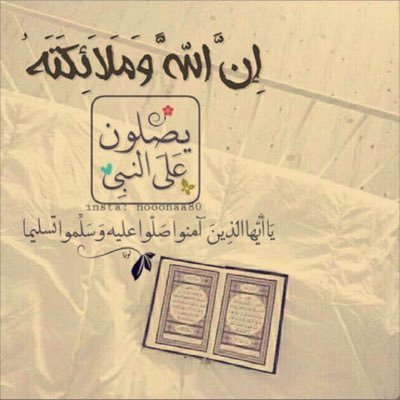 إِنَّ اللَّهَ وَمَلَائِكَتَهُ
يصلون
عَلَى النبِي
insta: nooonaa80
يَا أَيُّهَا الذِينَ آمنوا صَلّوا عليه وَسَلِّموا تسليما